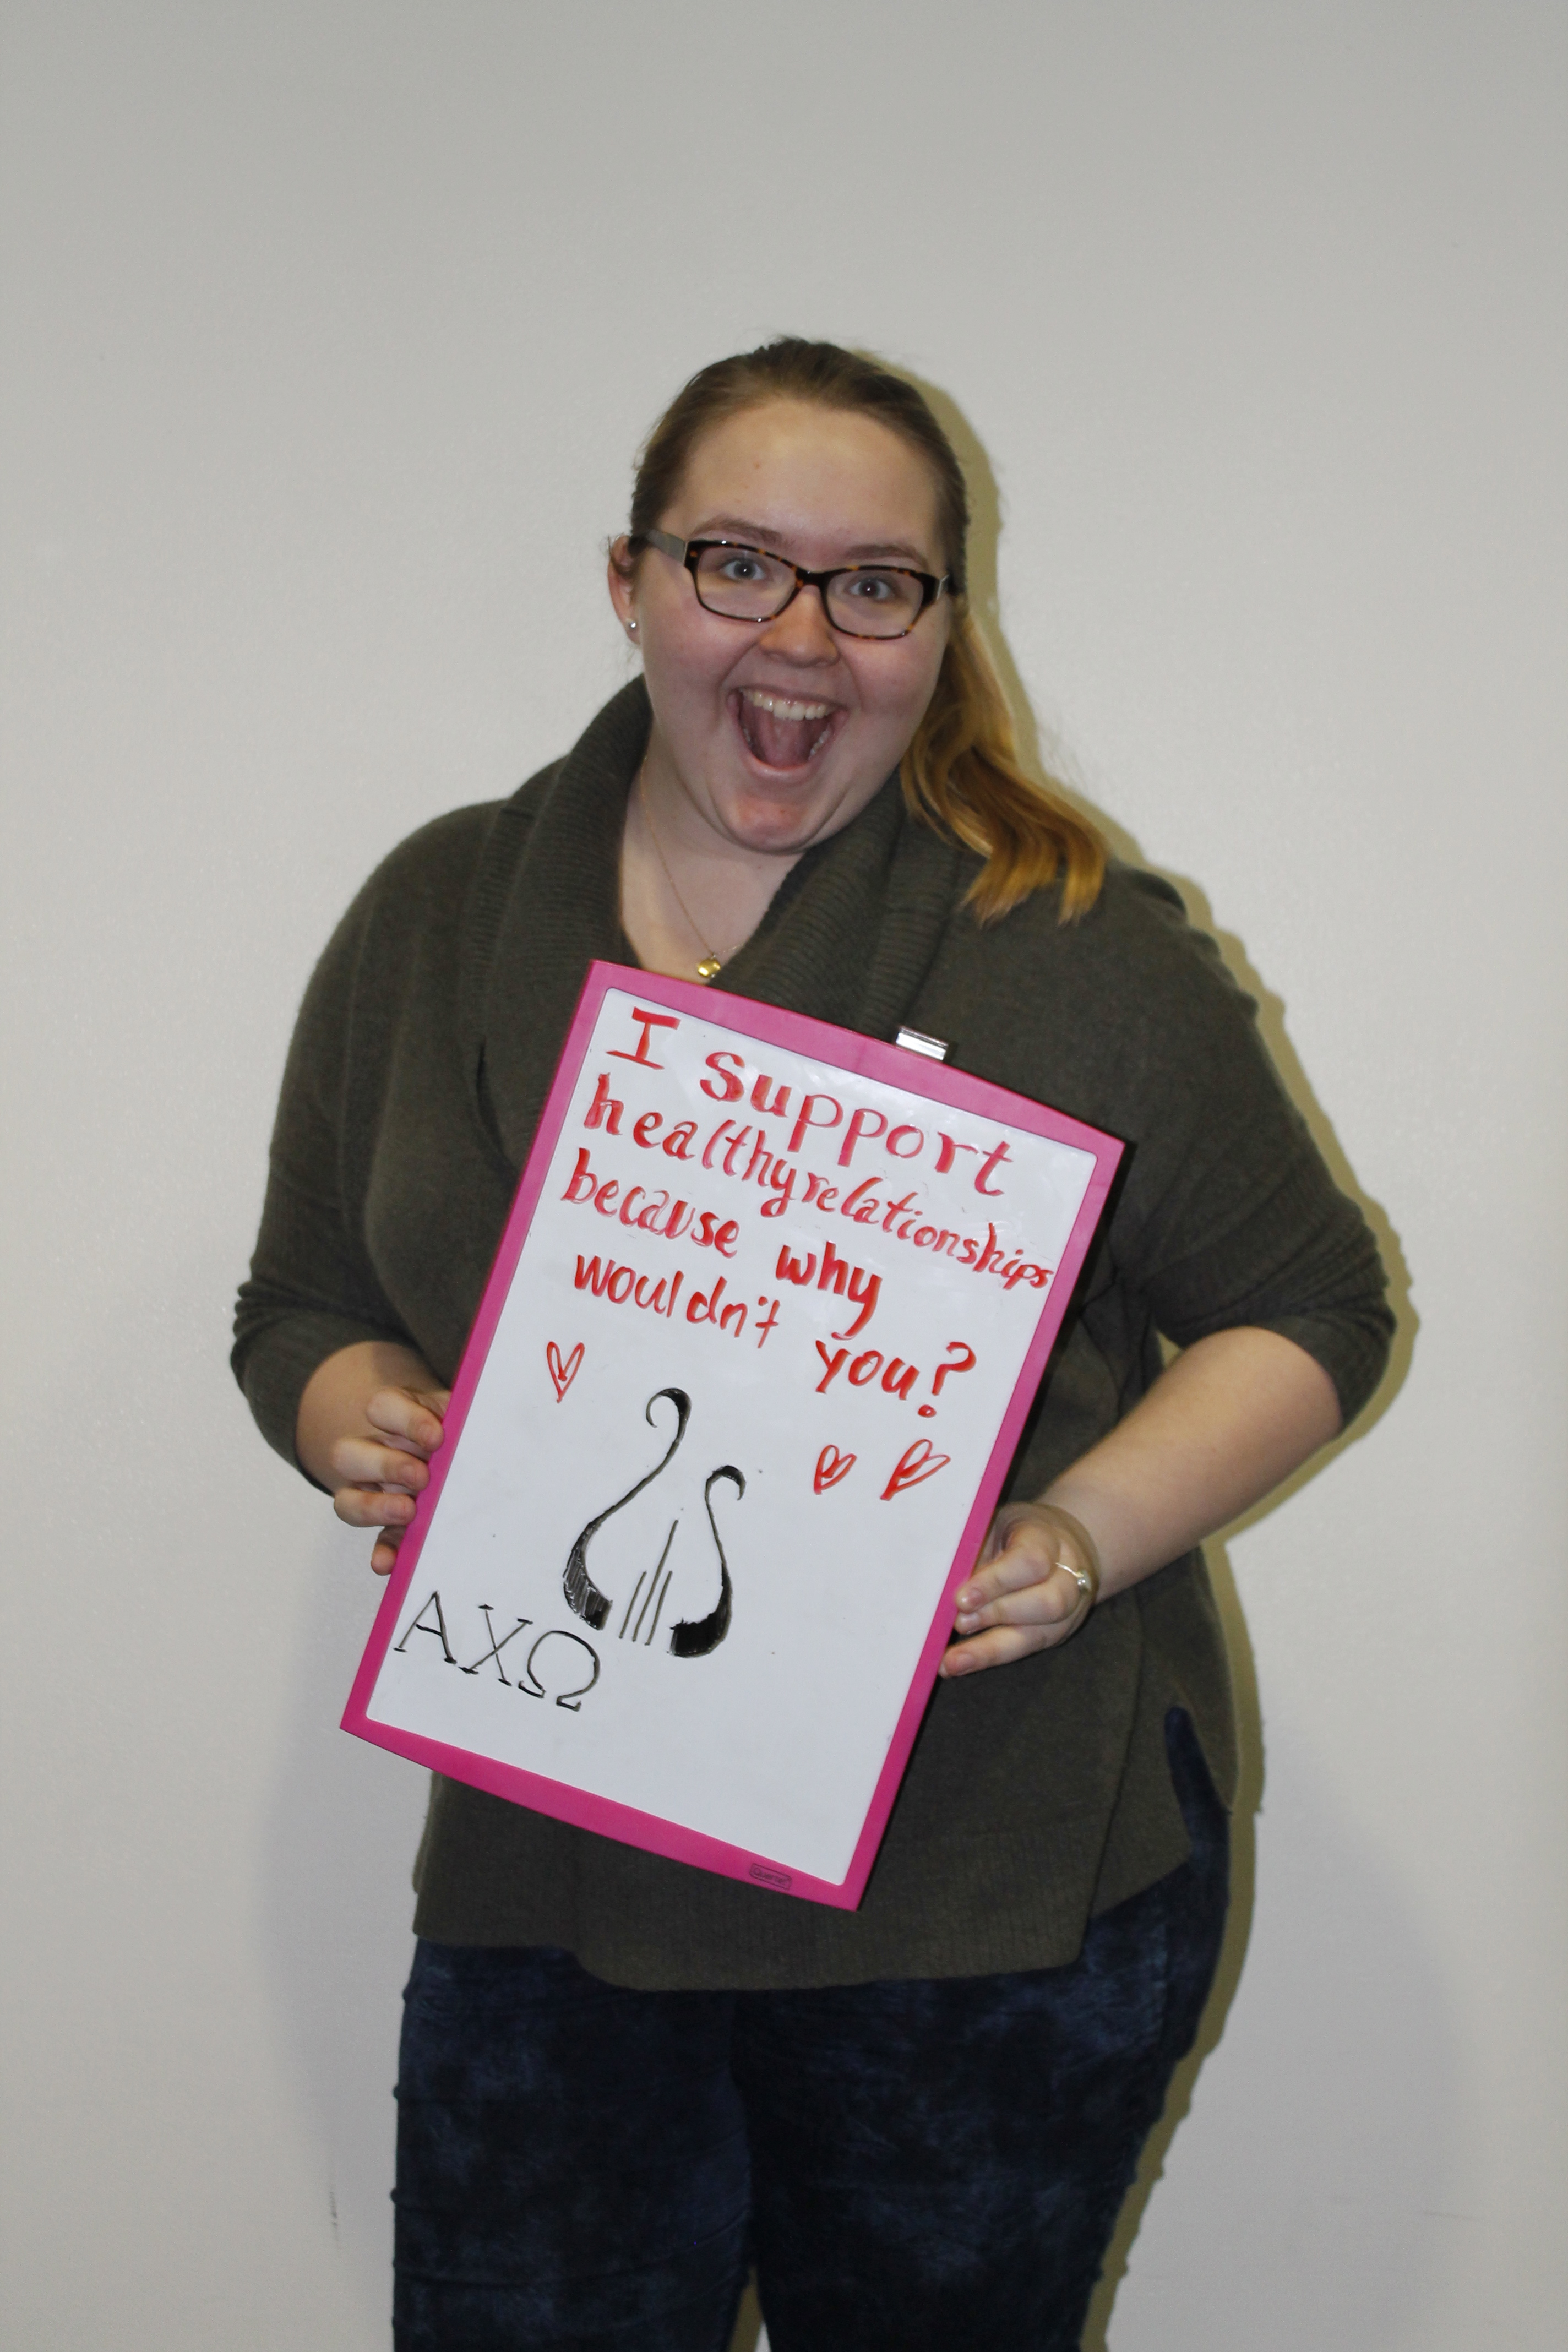 I support
healthy relationships
because why
wouldn't you?
ΑΧΩ
Quartet